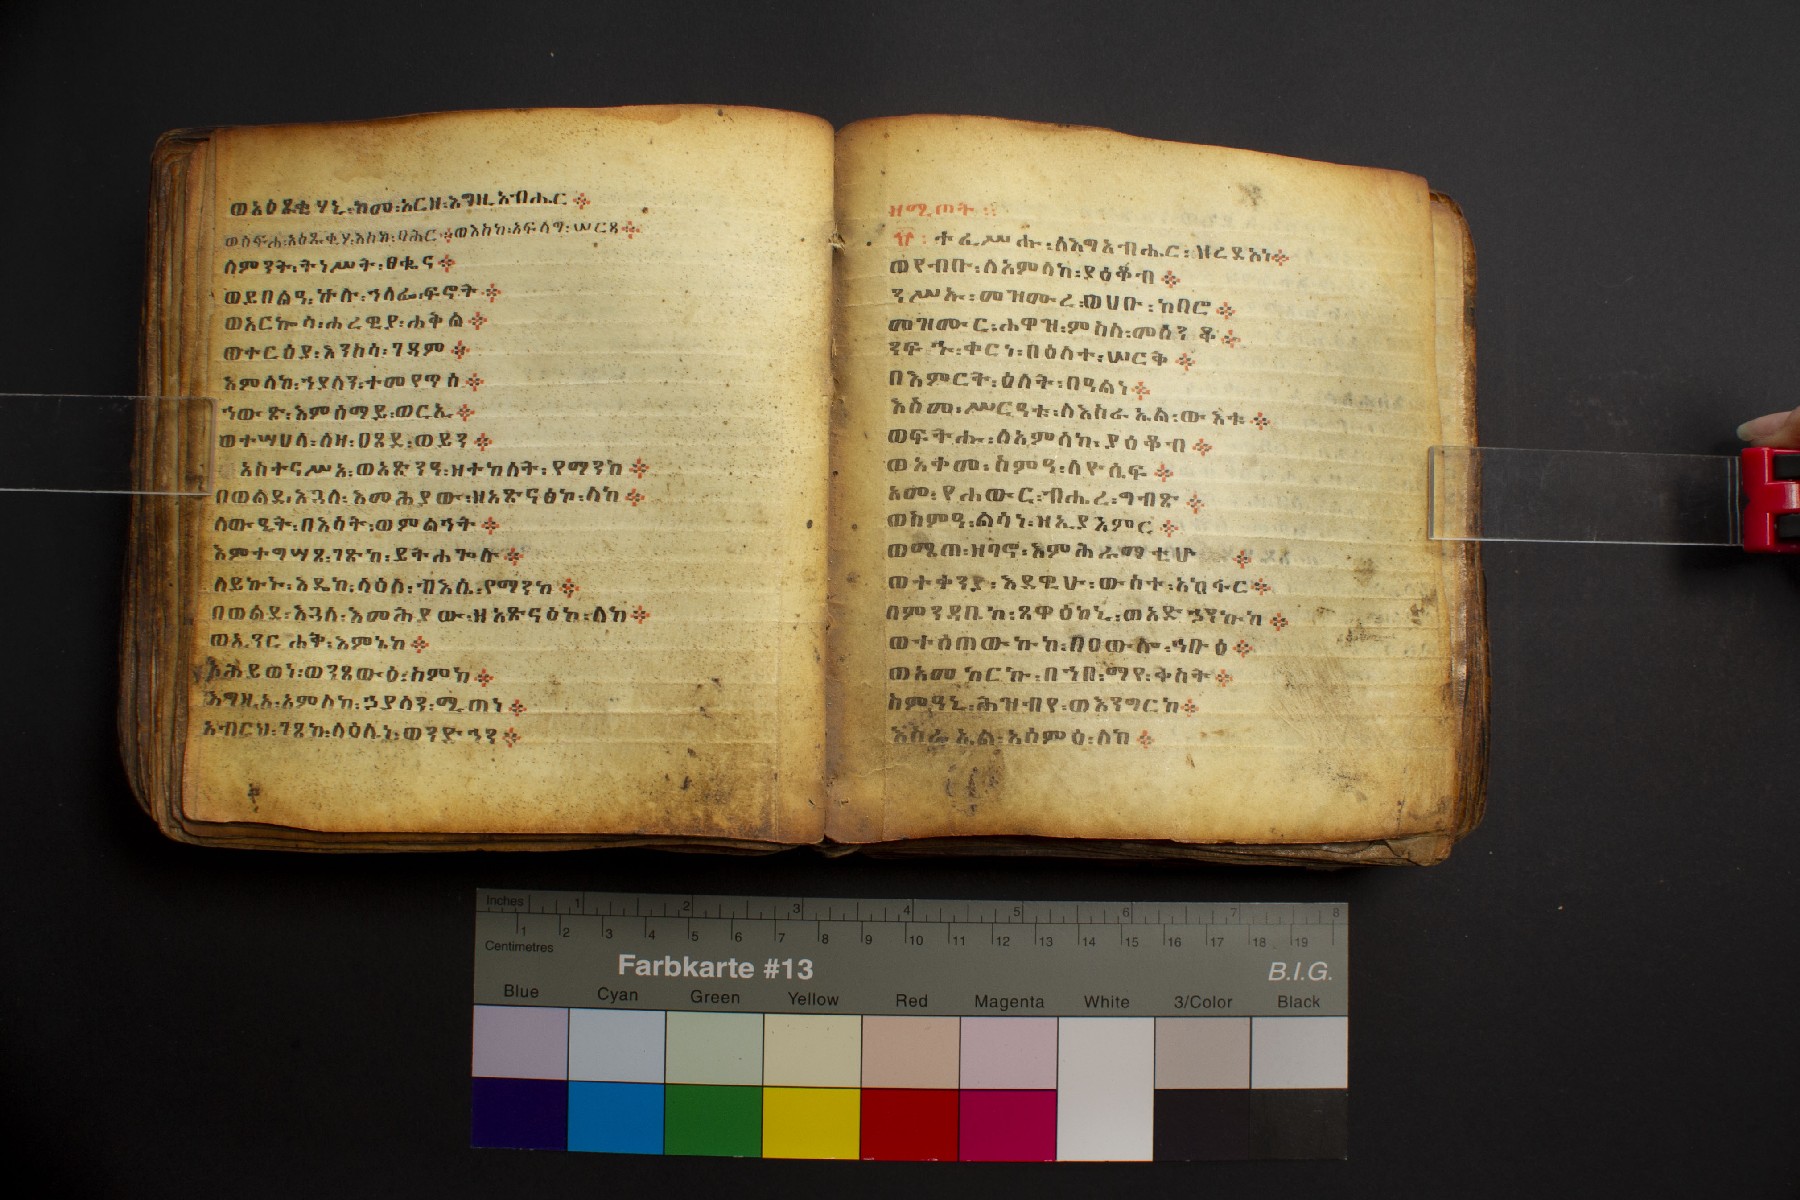 ወአዕጹቂሃኒ፡ከመ፡አርዘ፡እግዚአብሔር፨
ወሰፍሐ፡አዕጹቂሃ፡እስከ፡ባሕር፨ወእስከ፡አፍላግ፡ሠርጻ፨
ለምንት፡ትነሥት፡ፀቁና፨
ወይበልዓ፡ኵሉ፡ኀላፌ፡ፍኖት፨
ወአርኰሳ፡ሐረዊያ፡ሐቅል፨
ወተርዕያ፡እንስሳ፡ገዳም፨
አምላከ፡ኀያላን፡ተመየጥ፡ሰ፨
ነውጽ፡እምሰማይ፡ወርኢ፨
ወተሣሀላ፡ለዛ፡ዐጸደ፡ወይን፨
አስተናሥአ፡ወአጽንዓ፡ዘተከለት፡የማንከ፨
በወልደ፡እጓለ፡እመሕያው፡ዘአጽናዕከ፡ለከ፨
ለውዒት፡በእሳት፡ወምልኅት፨
እምተግሣጸ፡ገጽከ፡ይትሐጐሉ፨
ለይኩኑ፡እዴከ፡ላዕለ፡ብእሲ፡የማንከ፨
በወልደ፡እጓለ፡እመሕያው፡ዘአጽናዕከ፡ለከ፨
ወኢንርሐቅ፡እምኔከ፨
አሕይወነ፡ወንጸውዕ፡ስምከ፨
እግዚአ፡አምላከ፡ኃያላን፡ሚጠነ፨
አብርህ፡ገጸከ፡ላዕሌነ፡ወንድኅን፨
ዘሚጦት፡
፹፡ተፈሥሑ፡ለእግዚአብሔር፡ዘረድአነ፨
ወየብቡ፡ለአምላከ፡ያዕቆብ፨
ንሥኡ፡መዝሙረ፡ወሀቡ፡ከበሮ፨
መዝሙር፡ሐዋዝ፡ምስለ፡መሰንቆ፨
ንፍኁ፡ቀርነ፡በዕለተ፡ሠርቅ፨
በእምርት፡ዕለት፡በዓልነ፨
እስመ፡ሥርዓቱ፡ለእስራኤል፡ውእቱ፨
ወፍትሑ፡ለአምላከ፡ያዕቆብ፨
ወአቀመ፡ስምዓ፡ለዮሴፍ፨
አመ፡የሐውር፡ብሔረ፡ግብጽ፨
ወሰምዓ፡ልሳነ፡ዘኢያአምር፨
ወሜጠ፡ዘባኖ፡እምሕራማቲሁ፨
ወተቀንያ፡እደዊሁ፡ውስተ፡አከፋር፨
በምንዳቤከ፡ጸዋዕከኒ፡ወአድኃንኩከ፨
ወተሰጠውኩከ፡በዐውሎ፡ኅቡዕ፨
ወአመከርኩ፡በኀበ፡ማየ፡ቅስት፨
ስምዓኒ፡ሕዝብየ፡ወእንግርከ፨
እስራኤል፡አሰምዕ፡ለከ፨
Inches 1 2 3 4 5 6 7 8
1 2 3 4 5 6 7 8 9 10 11 12 13 14 15 16 17 18 19
Centimetres
Farbkarte #13 B.I.G.
Blue Cyan Green Yellow Red Magenta White 3/Color Black